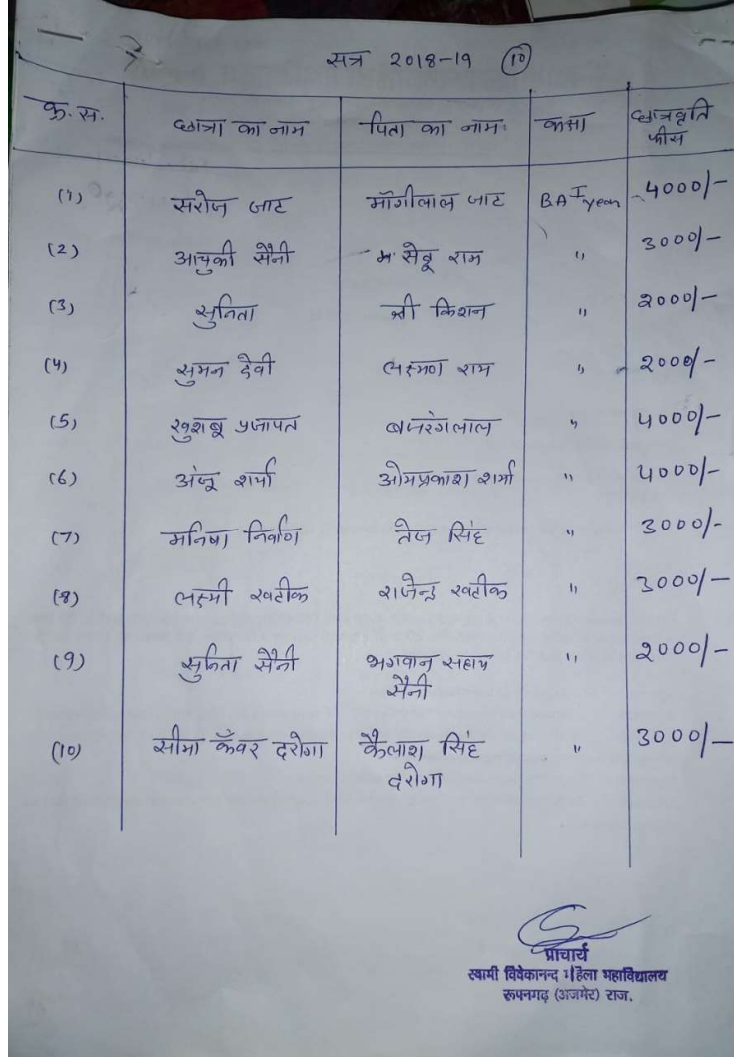 सत्र 2018-19 (10)
क्र. स. छात्रा का नाम पिता का नाम कक्षा छात्रवृति फीस
(1) सरोज जाट माँगीलाल जाट BA I year 4000/-
(2) आचुकी सैनी सेवू राम " 3000/-
(3) सुनिता श्री किशन " 2000/-
(4) सुमन देवी लक्ष्मण राम " 2000/-
(5) खुशबू प्रजापत बजरंगलाल " 4000/-
(6) अंजू शर्मा ओमप्रकाश शर्मा " 4000/-
(7) मनिषा निर्वाण तेज सिंह " 3000/-
(8) लक्ष्मी खटीक राजेन्द्र खटीक " 3000/-
(9) सुनिता सैनी भगवान सहाय सैनी " 2000/-
(10) सीमा कँवर दरोगा कैलाश सिंह दरोगा " 3000/-
प्राचार्य
स्वामी विवेकानन्द महिला महाविद्यालय
रूपनगढ़ (अजमेर) राज.